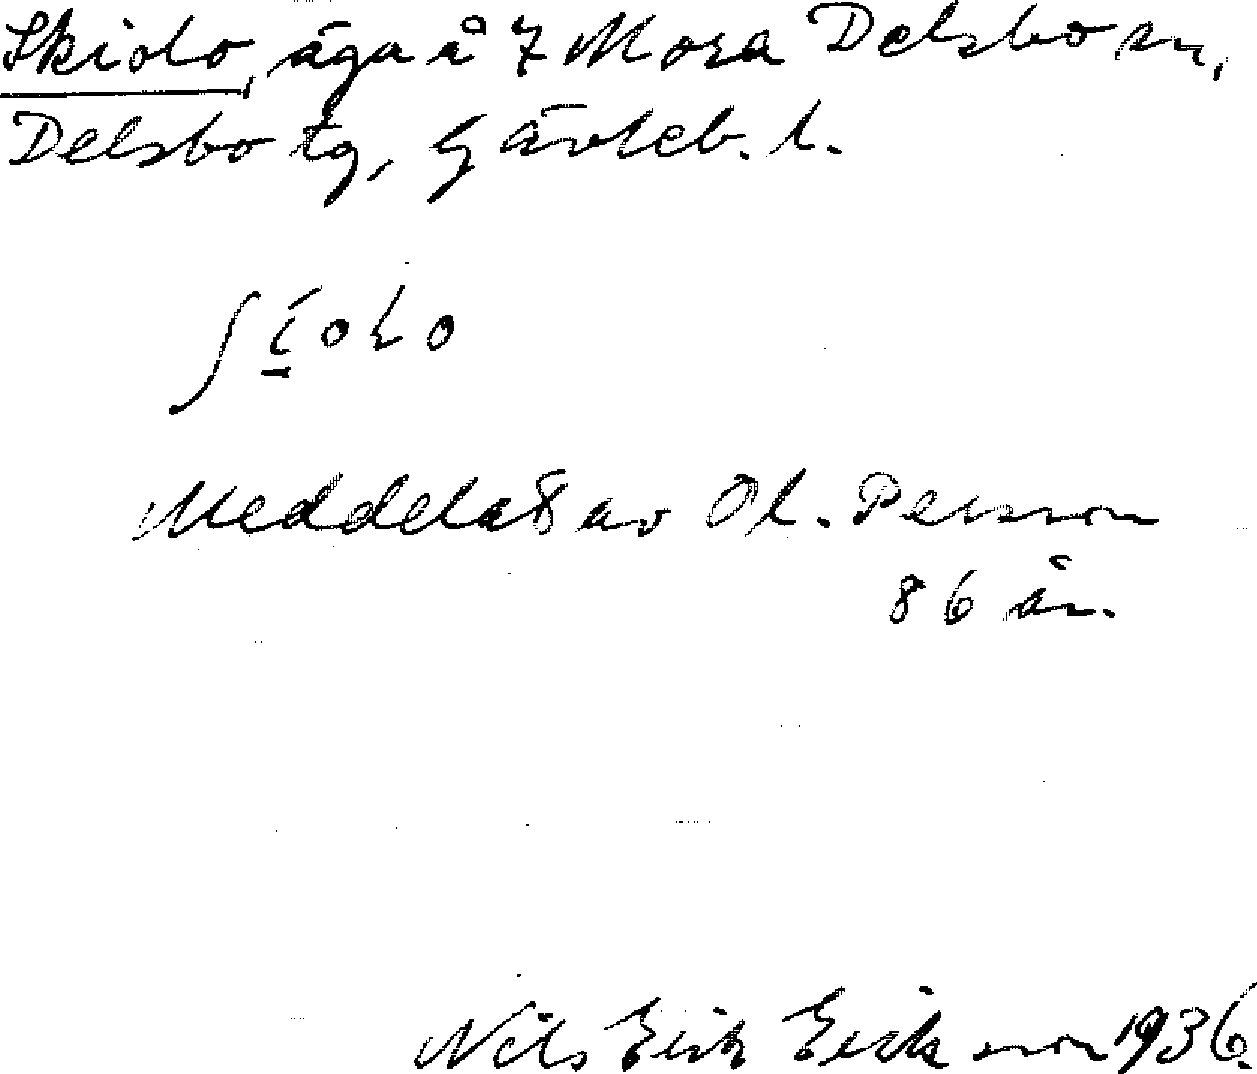 Skidlo, äga å 7 Mora Delsbo sn,
Delsbo tg, Gävleb. l.
Meddelat av Ol. Persson
86 år.
Nils Erik Eriksson 1936.